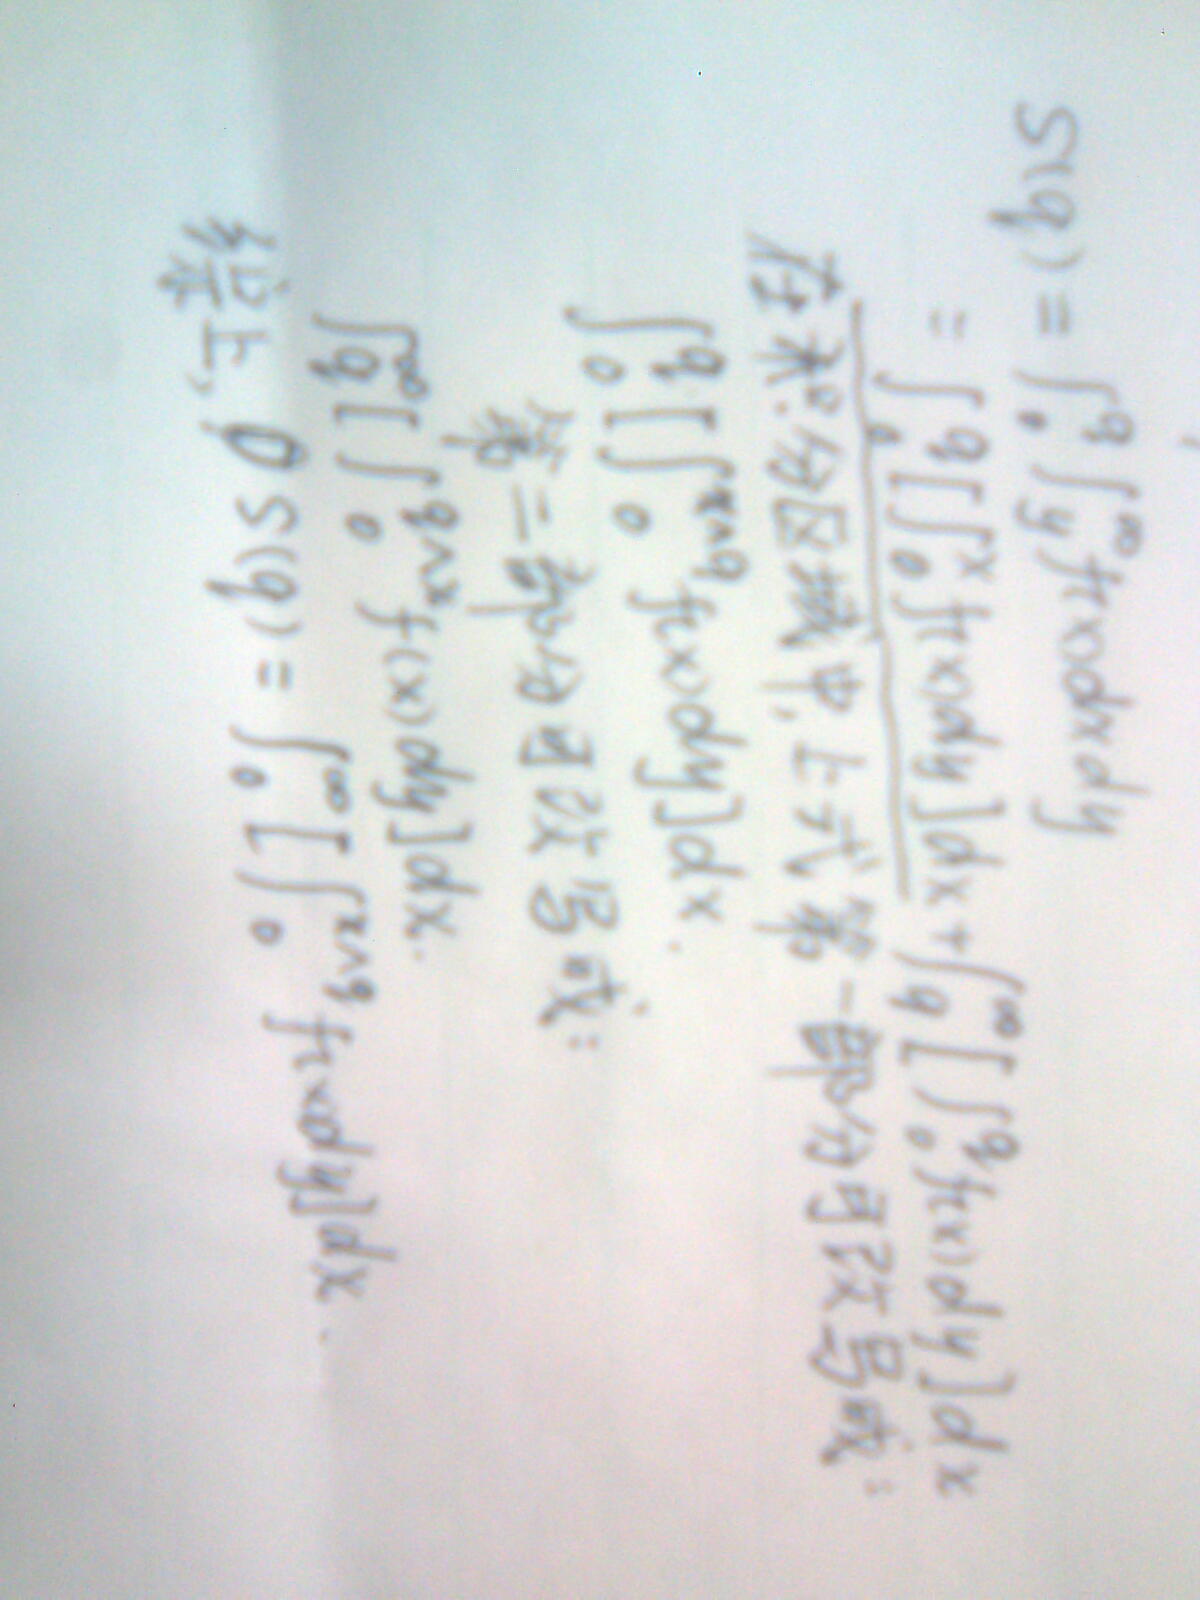 S(q) = ∫₀^q ∫_y^∞ f(x)dxdy
= ∫₀^q [∫₀^x f(x)dy]dx + ∫_q^∞ [∫₀^q f(x)dy]dx
在积分区域中, 上式第一部分可改写成:
∫₀^q [∫₀^{x∧q} f(x)dy]dx.
第二部分可以写成:
∫_q^∞ [∫₀^{q∧x} f(x)dy]dx.
综上, S(q) = ∫₀^∞ [∫₀^{x∧q} f(x)dy]dx.